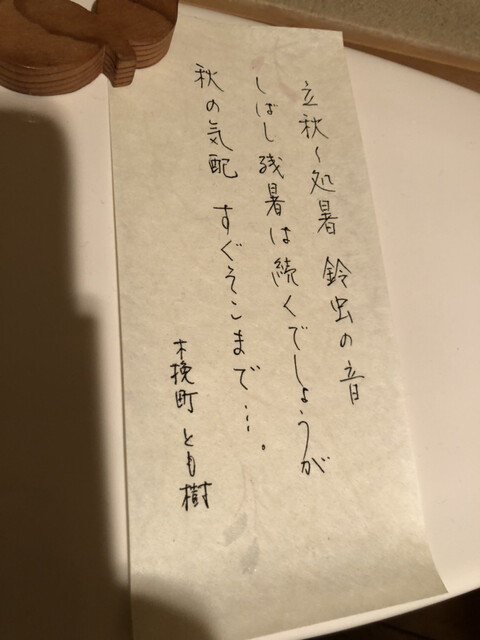 立秋〜処暑 鈴虫の音
しばし残暑は続くでしょうが
秋の気配 すぐそこまで…。
木挽町 とも樹